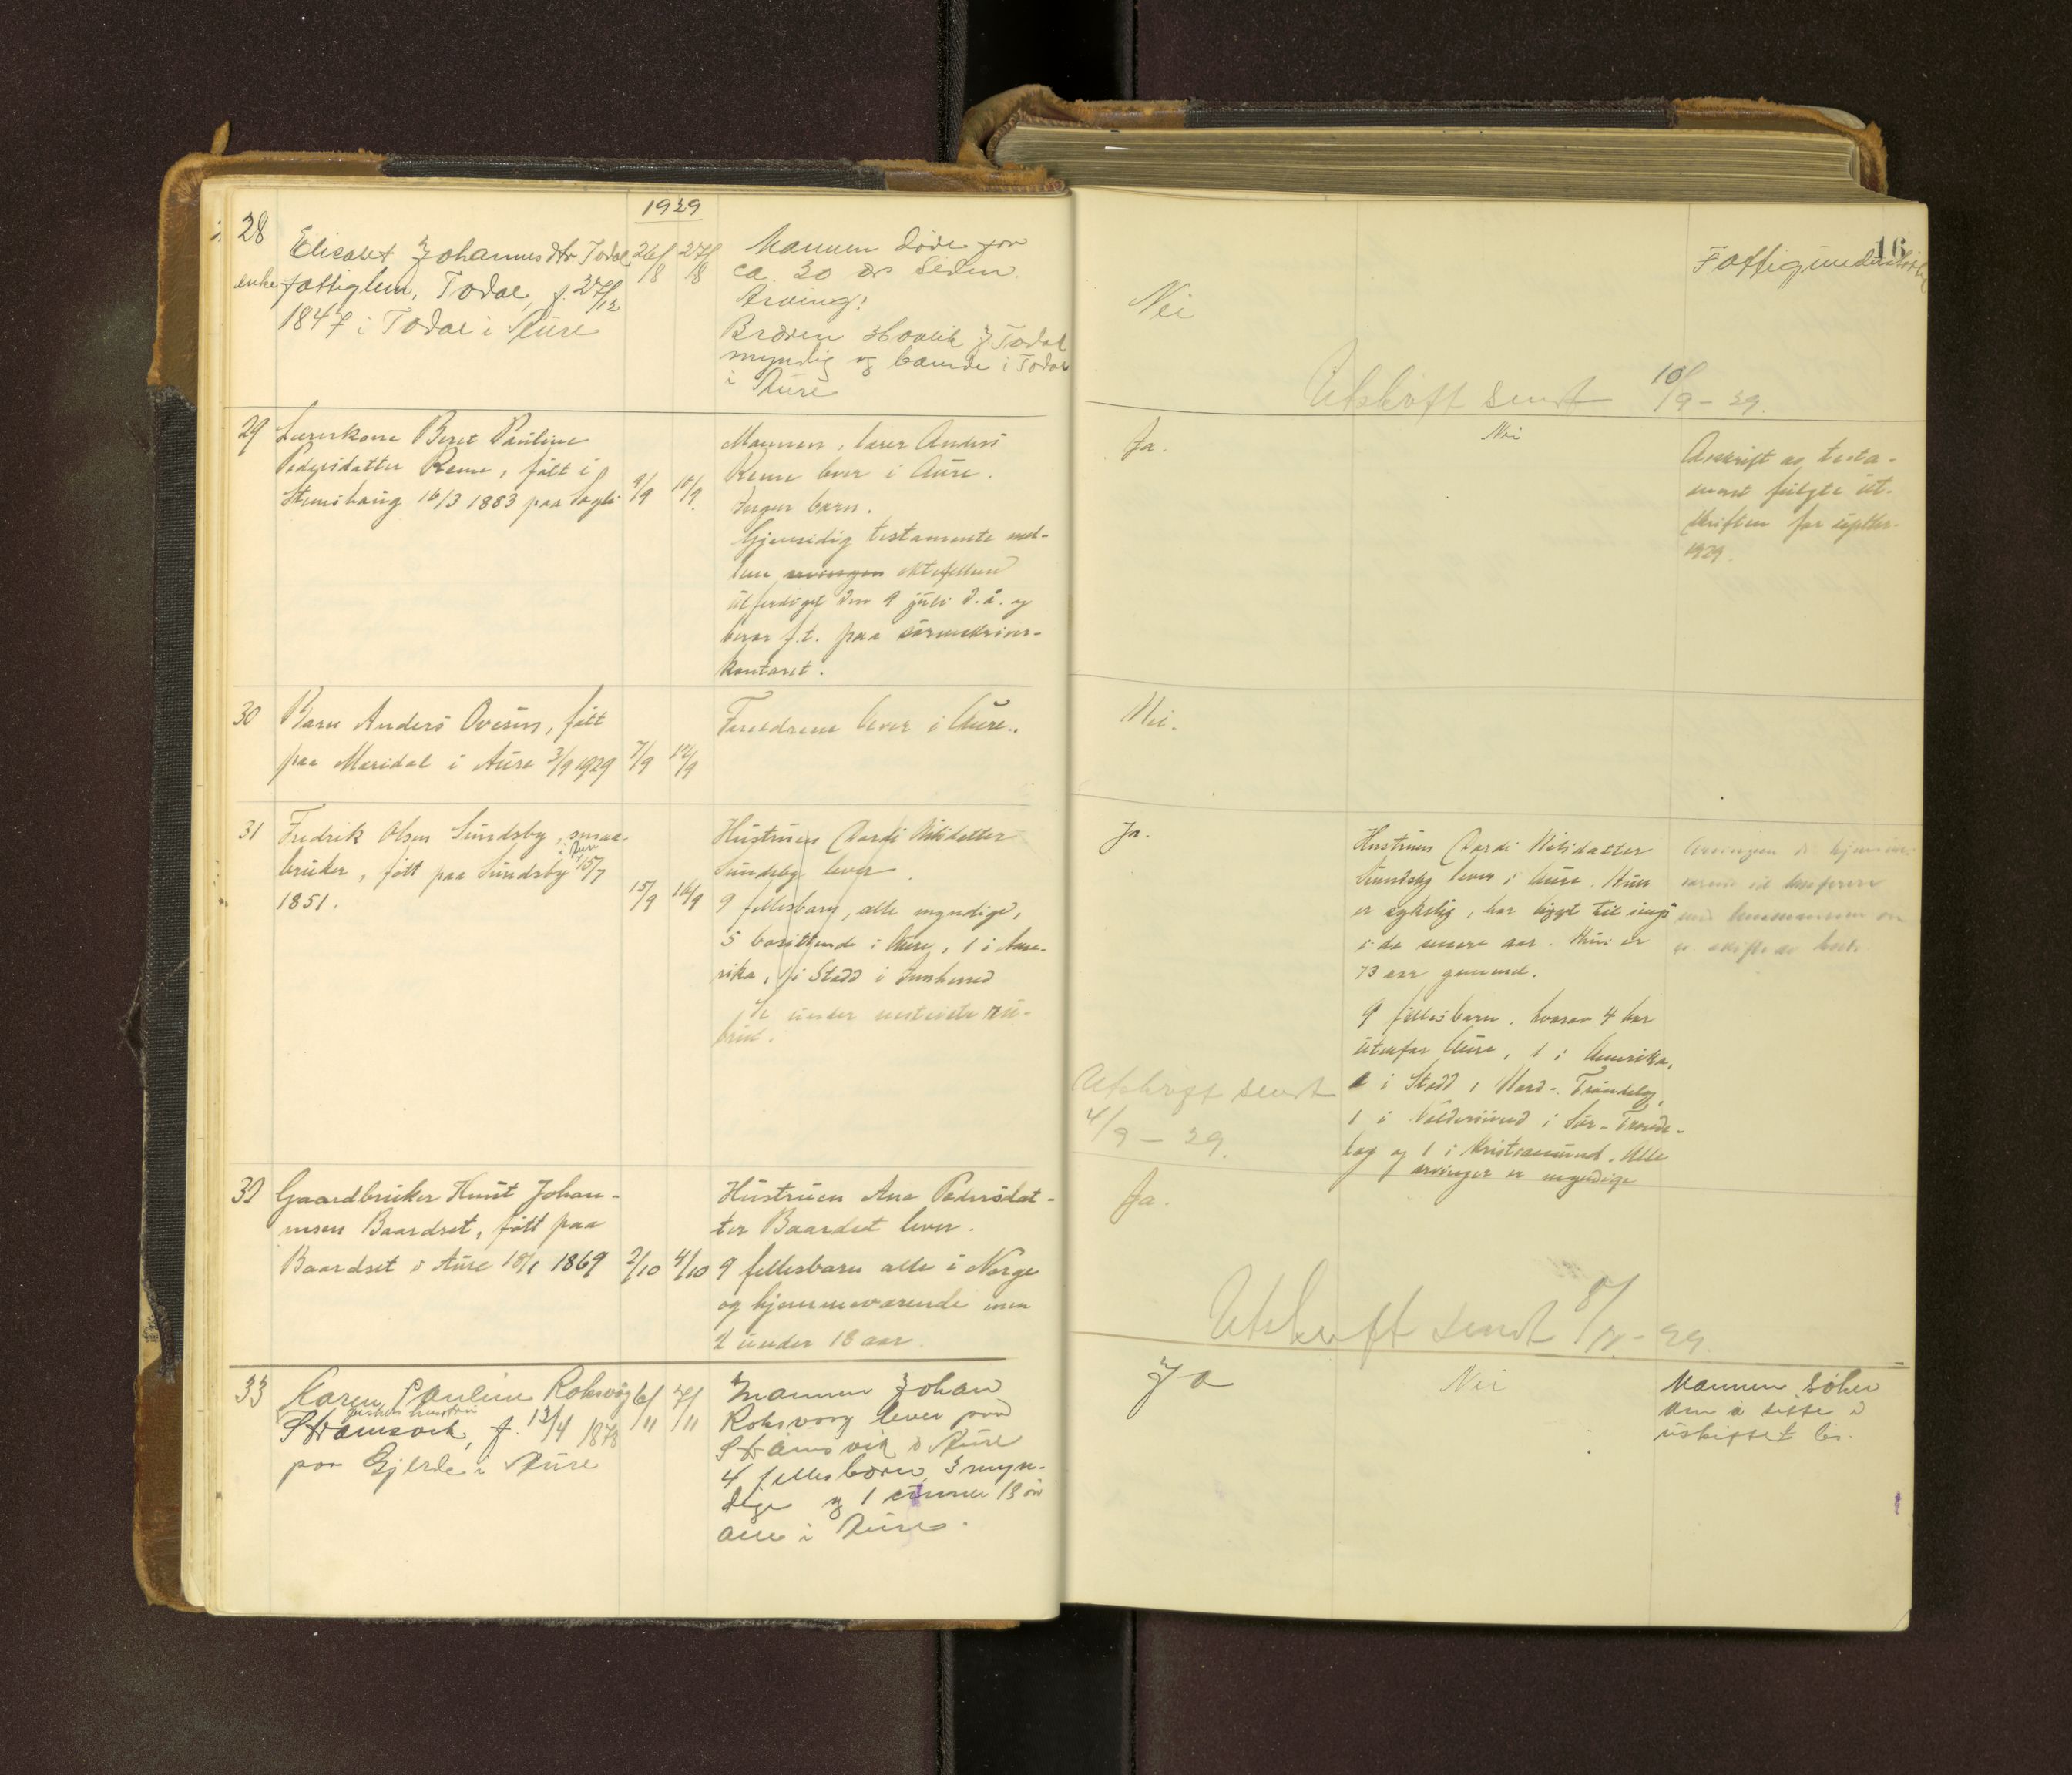 1929
16
28
Elisabet Johannesdtr. Todal 26/8 27/8
enke fattiglem, Todal, f. 27/12
1847 i Todal i Aure
Mannen døde for
ca. 30 år siden.
Arving:
Broren J Todal
myndig og boende i Todal
i Aure
Nei
Fattigunderstøttet
Utskrift sendt 10/9-29.
29 Lærerkone Beret Pauline
Pedersdatter Reme, født i
Stemshaug 16/3 1883 paa 9/9 10/9.
Mannen, lærer Anders
Reme lever i Aure.
Ingen barn.
Gjensidig testamente mel-
lem arvingen ektefellene
utferdiget den 9 juli d.å. og
beror f.t. paa sorenskriver-
kontoret.
Ja.
Nei
Avskrift av testa-
ment fulgte ut-
skriften for septbr.
1929.
30 Barn Anders Ovesen, født
paa Mæridal i Aure 3/9 1929 7/9 12/9
Foreldrene lever i Aure.
Nei.
31 Fredrik Olsen Sundsby, smaa-
bruker, født paa Sundsby i Aure 15/7
1851. 15/9 16/9
Hustruen Nilsdatter
Sundsby lever.
9 fellesbarn, alle myndige,
5 bosittende i Aure, 1 i Ame-
rika, 1 i Stodd i Innherred
Se under nestsiste ru-
brik.
Ja.
Hustruen Nilsdatter
Sundsby lever i Aure. Hun
er sykelig, har ligget til sengs
i de senere aar. Hun er
73 aar gammel.
9 fellesbarn, hvorav 4 bor
utenfor Aure, 1 i Amerika,
1 i Stodd i Nord-Trøndelag,
1 i Valdersund i Sør-Trønde-
lag og 1 i Kristiansund. Alle
arvinger er myndige
Arvingen
er skifte av boet.
Utskrift sendt
4/9-29.
32 Gaardbruker Knut Johan-
nesen Baardset, født paa
Baardset i Aure 18/1 1869 2/10 4/10
Hustruen Ane Pedersdat-
ter Baardset lever.
9 fellesbarn alle i Norge
og hjemmeværende men
2 under 18 aar.
Ja.
Utskrift sendt
33 Karen Pauline Roksvåg 6/11 7/11
fiskers hustru
Strømsvik, f. 13/4 1878
paa Gjerde i Aure
Mannen Johan
Roksvåg lever paa
Strømsvik i Aure
4 fellesbarn, 3 myn-
dige og 1 under 18 år
alle i Aure.
Ja
Nei
Mannen søker
om å sitte i
uskiftet bo.